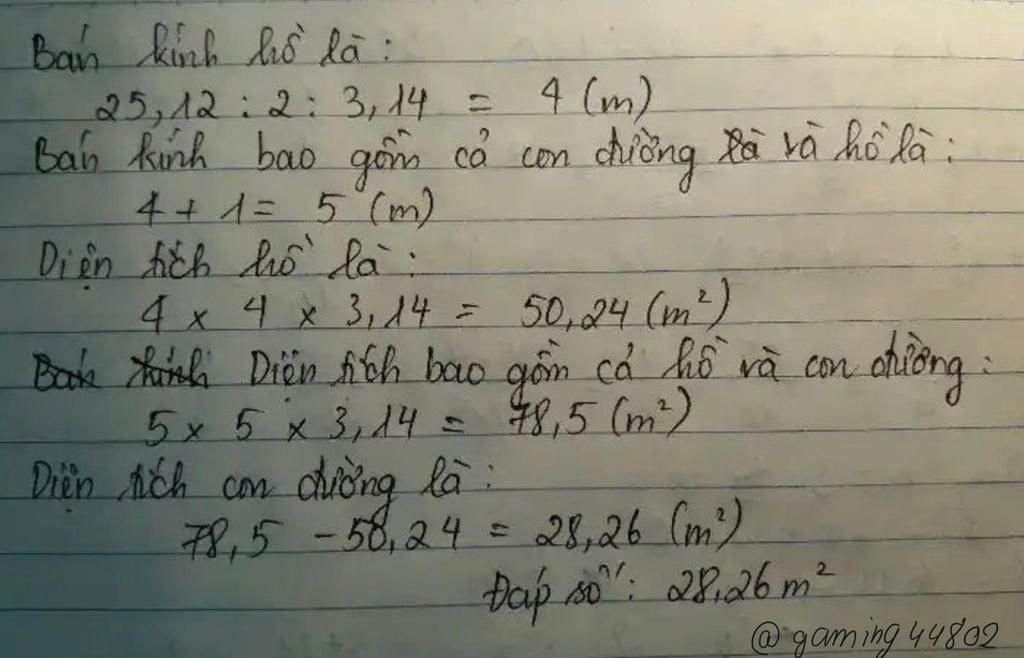 Bán kính hồ là:
25,12 : 2 : 3,14 = 4 (m)
Bán kính bao gồm cả con đường là và hồ là:
4 + 1 = 5 (m)
Diện tích hồ là:
4 x 4 x 3,14 = 50,24 (m²)
Bán kính Diện tích bao gồm cả hồ và con đường:
5 x 5 x 3,14 = 78,5 (m²)
Diện tích con đường là:
78,5 - 50,24 = 28,26 (m²)
Đáp số: 28,26 m²
@gaming44802